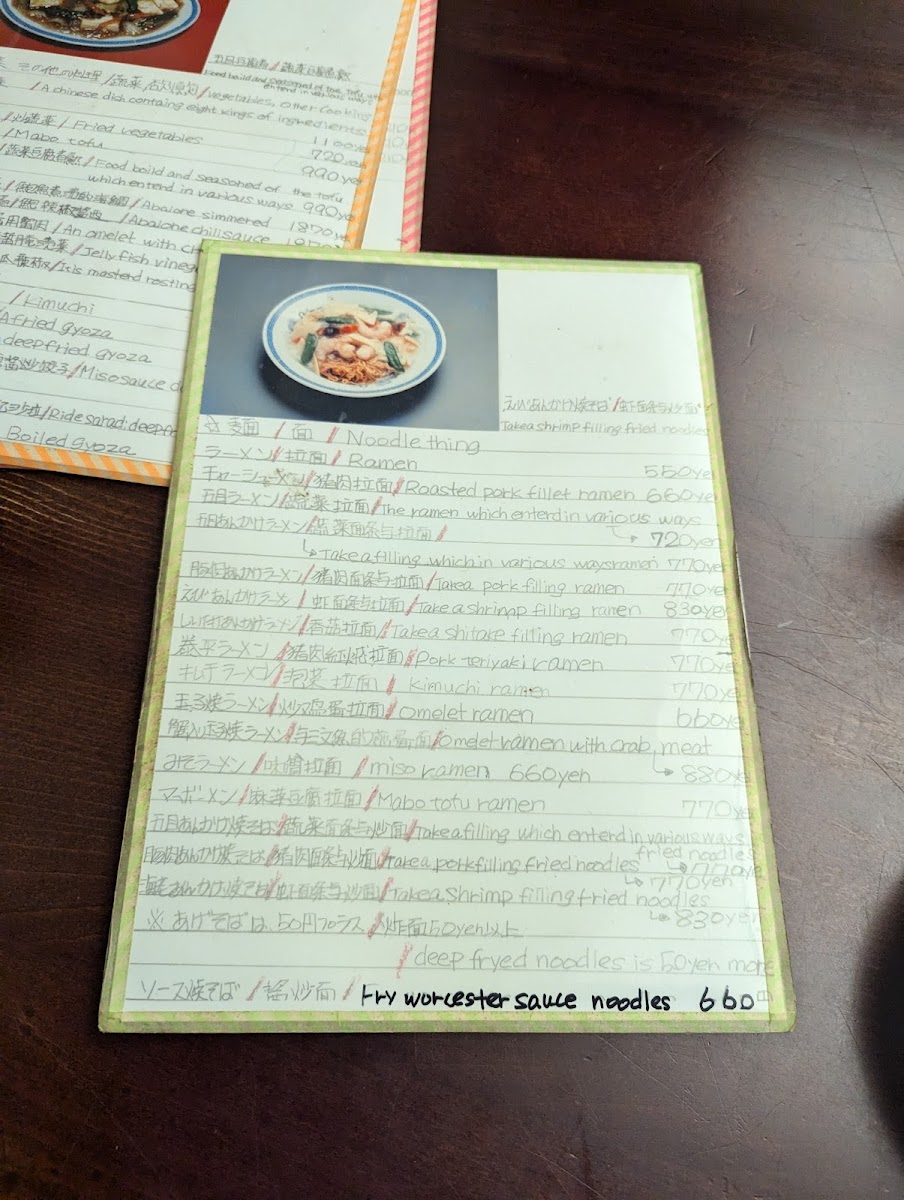 その他の料理
/vegetables, other Cooking
/A chinese dish containg eight kings of ingredients
/Fried vegetables 1100yen
/Mabo tofu 720yen
/Food boild and seasoned of the tofu 990ye
which entend in various ways 990ye
/Abalone simmered 1870
/Abalone chilisauce
/An omelet with c
/Jelly fish vineg
/It is mastend rosting
/Kimuchi
A fried gyoza
deepfried gyoza
/Misosauce d
/Ride sarad: deepfr
Boiled gyoza
えびあんかけ焼そば/虾面条与炒面
Take a shrimp filling fried noodles
☆ 麺 / 面 / Noodle thing
ラーメン/拉面/Ramen 550yen
チャーシューメン/猪肉拉面/Roasted pork fillet ramen 660yen
五目ラーメン/蔬菜拉面/The ramen which enterd in various ways
↳ 720yen
五目あんかけラーメン/蔬菜面条与拉面/
↳ Take a filling which in various ways ramen 770yen
豚肉あんかけラーメン/猪肉面条与拉面/Take a pork filling ramen 770yen
えびあんかけラーメン/虾面条与拉面/Take a shrimp filling ramen 830yen
しいたけあんかけラーメン/香菇拉面/Take a shitake filling ramen 770ye
ラーメン/猪肉红烧拉面/Pork teriyaki ramen 770ye
キムチラーメン/泡菜拉面/Kimuchi ramen 770ye
玉子焼ラーメン/炒鸡蛋拉面/Omelet ramen 660ye
蟹入り玉子焼ラーメン/Omelet ramen with crab meat
↳ 880ye
みそラーメン/味噌拉面/miso ramen 660yen
マーボーメン/麻婆豆腐拉面/Mabo tofu ramen 770yen
五目あんかけ焼そば/蔬菜面条与炒面/Take a filling which entend in various ways
fried noodles
↳ 770ye
豚肉あんかけ焼そば/猪肉面条与炒面/Take a pork filling fried noodles
↳ 770yen
あんかけ焼そば/虾面条与炒面/Take a Shrimp filling fried noodles
↳ 830yen
※ あげそばは、50円プラス/炸面50yen以上
/deep fryed noodles is 50yen more
ソース焼そば/酱炒面/Fry worcester sauce noodles 660円